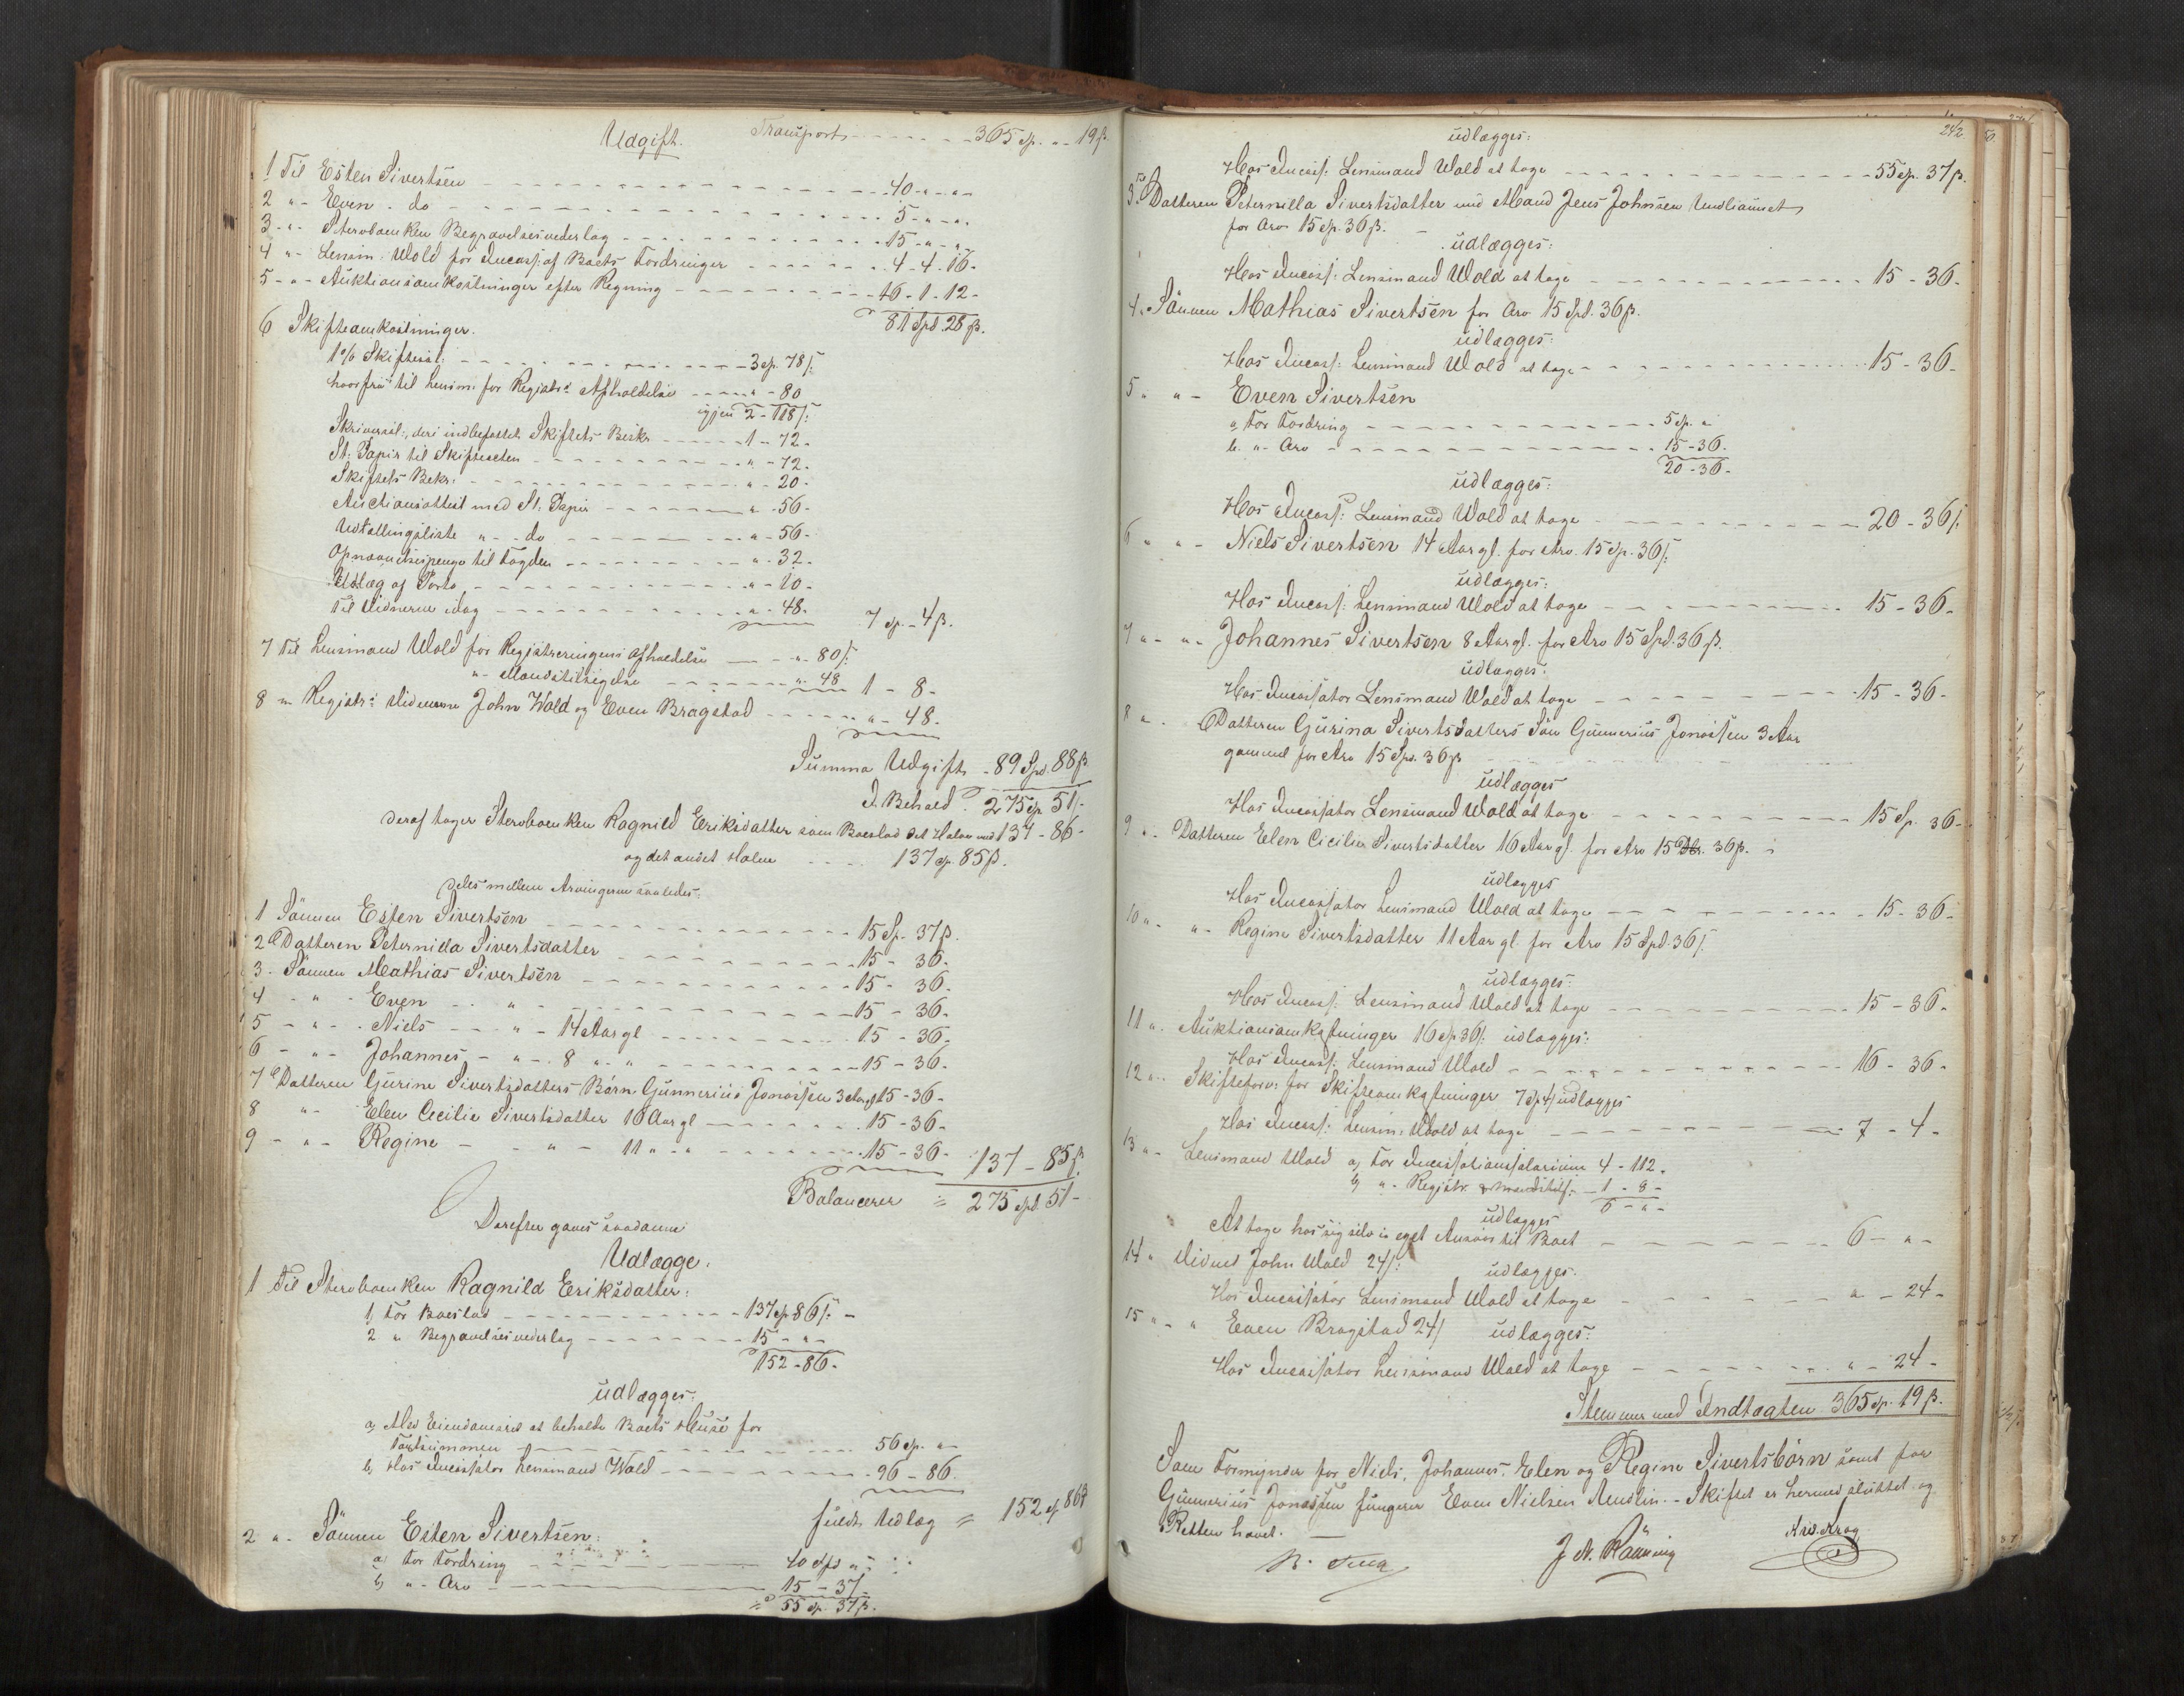 Udgift. Transport - - - - - - 365 sp. " - 19 β.
1 Til Esten Sivertsen - - - - - 40 - " - "
2 " - Even - do - - - - - 5 - " - "
3 - " - Sterboenken Begravelsesvederlag - - - - - 15 - " - "
4 " - Lensm: Wold for Incass: af Boets Fordringer - - - - - 4 - 4 - 16 -
5 - " - Auktionsomkostninger efter Regning - - - - - 16 - 1 - 12 -
81 Spd. 28 β.
6 Skifteomkostninger.
1% Skiftesal: - - - - - 3 sp. 78 β:
hvorfra til Lensm: for Registr: Afholdelse - - - - " - 80
igjen 2 - 118 β:
Skriversal:, deri indbefattet Skiftets Beskr - - - - 1 - 72 -
St: Papir til Skifteacten - - - - " - 72 -
Skiftets Bekr: - - - - " - 20 -
Auctionsattest med St: Papir - - - - " - 56 -
Udtallingsliste " - do - - - - " - 56 -
Opnævnelsespenge til Fogden - - - - " - 32 -
Udlæg af Porto - - - - " - 10 -
Til Vidnerne idag - - - - " - 48 - 7 sp. - 4 β.
7 Til Lensmand Wold for Registreringens Afholdelse - - " - 80 β:
" - Mandstilsigelse - - - - " - 48 1 - 8 -
8 " - Registr: Vidnerne John Wold og Even Bragstad - - - - " - 48 -
Summa Udgift - 89 Spd. 88 β
I Behold - 275 sp. 51 β
Deraf tager Sterboenken Ragnild Eriksdatter som Boeslod det Halve med 137 - 86 -
og det andet Halve - - - - 137 sp. 85 β.
deles mellem Arvingerne saaledes:
1 Sønnen Esten Sivertsen - - - - 15 Sp. 37 β.
2 Datteren Peternilla Sivertsdatter - - - - 15 - 36 -
3 - Sønnen Mathias Sivertsen - - - - 15 - 36 -
4 - " - Even - - " - - - - - 15 - 36 -
5 - " - Niels - - " - 14 Aar gl - - - - 15 - 36 -
6 - " - Johannes - " - 8 " - " - - - - 15 - 36 -
7 Datteren Gurine Sivertsdatters Børn Gunnerius Jonassen 3 Aar gl 15 - 36 -
8 " - Elen Cecilie Sivertsdatter 16 Aar gl - - - - 15 - 36 -
9 - " - Regine - - " - 11 " - " - - - - 15 - 36 - 137 - 85 β.
Balancerer = 275 spd. 51 -
Derefter gaves saadanne
Udlægge:
1 Til Sterboenken Ragnild Eriksdatter:
1, For Boeslod - - - - 137 sp 86 β: -
2 " Begravelsesvederlag - - - - 15 - " -
152 - 86 -
udlægges:
a, Med Eiendomsret at beholde Boets Huse for
Taxtsummen - - - - 56 sp. " -
b, Hos Incassator Lensmand Wold - - - - 96 - 86 -
fuldt Udlæg = 152 sp 86 β
2 " - Sønnen Esten Sivertsen:
a, For Fordring - - - - 40 Spd " -
b, " - Arv - - - - 15 - 37
= 55 sp. 37 β.
242
udlægges:
Hos Incass: Lensmand Wold at tage - - - - 55 sp. 37 β.
3. Datteren Peternilla Sivertsdatter med Mand Jens Johnsen
for Arv 15 sp. 36 β. -
udlægges:
Hos Incass: Lensmand Wold at tage - - - - 15 - 36 -
4. Sønnen Mathias Sivertsen for Arv 15 Spd. 36 β.
udlægges:
Hos Incass: Lensmand Wold at tage - - - - 15 - 36 -
5 " " - Even Sivertsen
a, For Fordring - - - - 5 sp. "
b. " - Arv - - - - 15 - 36 -
20 - 36 -
udlægges:
Hos Incass: Lensmand Wold at tage - - - - 20 - 36 β
6 " " - Niels Sivertsen 14 Aar gl. for Arv 15 Sp. 36 β:
udlægges:
Hos Incass: Lensmand Wold at tage - - - - 15 - 36 -
7 " - " - Johannes Sivertsen 8 Aar gl. for Arv 15 Spd. 36 β.
udlægges:
Hos Incassator Lensmand Wold at tage - - - - 15 - 36 -
8 " - Datteren Gurina Sivertsdatters Søn Gunnerius Jonassen 3 Aar
gammel for Arv 15 Spd. 36 β
udlægges
Hos Incassator Lensmand Wold at tage - - - - 15 Sp. 36 -
9 " - Datteren Elen Cicilie Sivertsdatter 16 Aar gl. for Arv 15 Spd. 36 β. -
udlægges
Hos Incassator Lensmand Wold at tage - - - - 15 - 36 -
10 " - " - Regine Sivertsdatter 11 Aar gl. for Arv 15 Spd. 36 β.
udlægges:
Hos Incass: Lensmand Wold at tage - - - - 15 - 36 -
11 " - Auktionsomkostninger 16 sp 36 β. udlægges:
Hos Incass: Lensmand Wold - - - - 16 - 36 -
12 " - Skifteforv: for Skifteomkostninger 7 sp 4 β udlægges
Hos Incass: Lensm: Wold at tage - - - - 7 - 4 -
13 " - Lensmand Wold a, For Incassationssalarium 4 - 112 -
b, " - Registr. & Mandstils: - 1 - 8 -
6 - " -
udlægges
At tage hos sig selv i eget Ansvar til Boet - - - - 6 - " -
14 " Vidnet John Wold 24 β: udlægges:
Hos Incassator Lensmand Wold at tage - - - - " - 24 -
15 " - " Even Bragstad 24 β udlægges:
Hos Incassator Lensmand Wold at tage - - - - " - 24 -
Stemmer med Indtægten 365 sp. 19 β.
Som Formynder for Niels, Johannes, Elen og Regine Sivertsbørn samt for
Gunnerius Jonassen fungerer Even Nielsen - Skiftet er hermed sluttet og
Retten hævet. -
J. N. Rønning